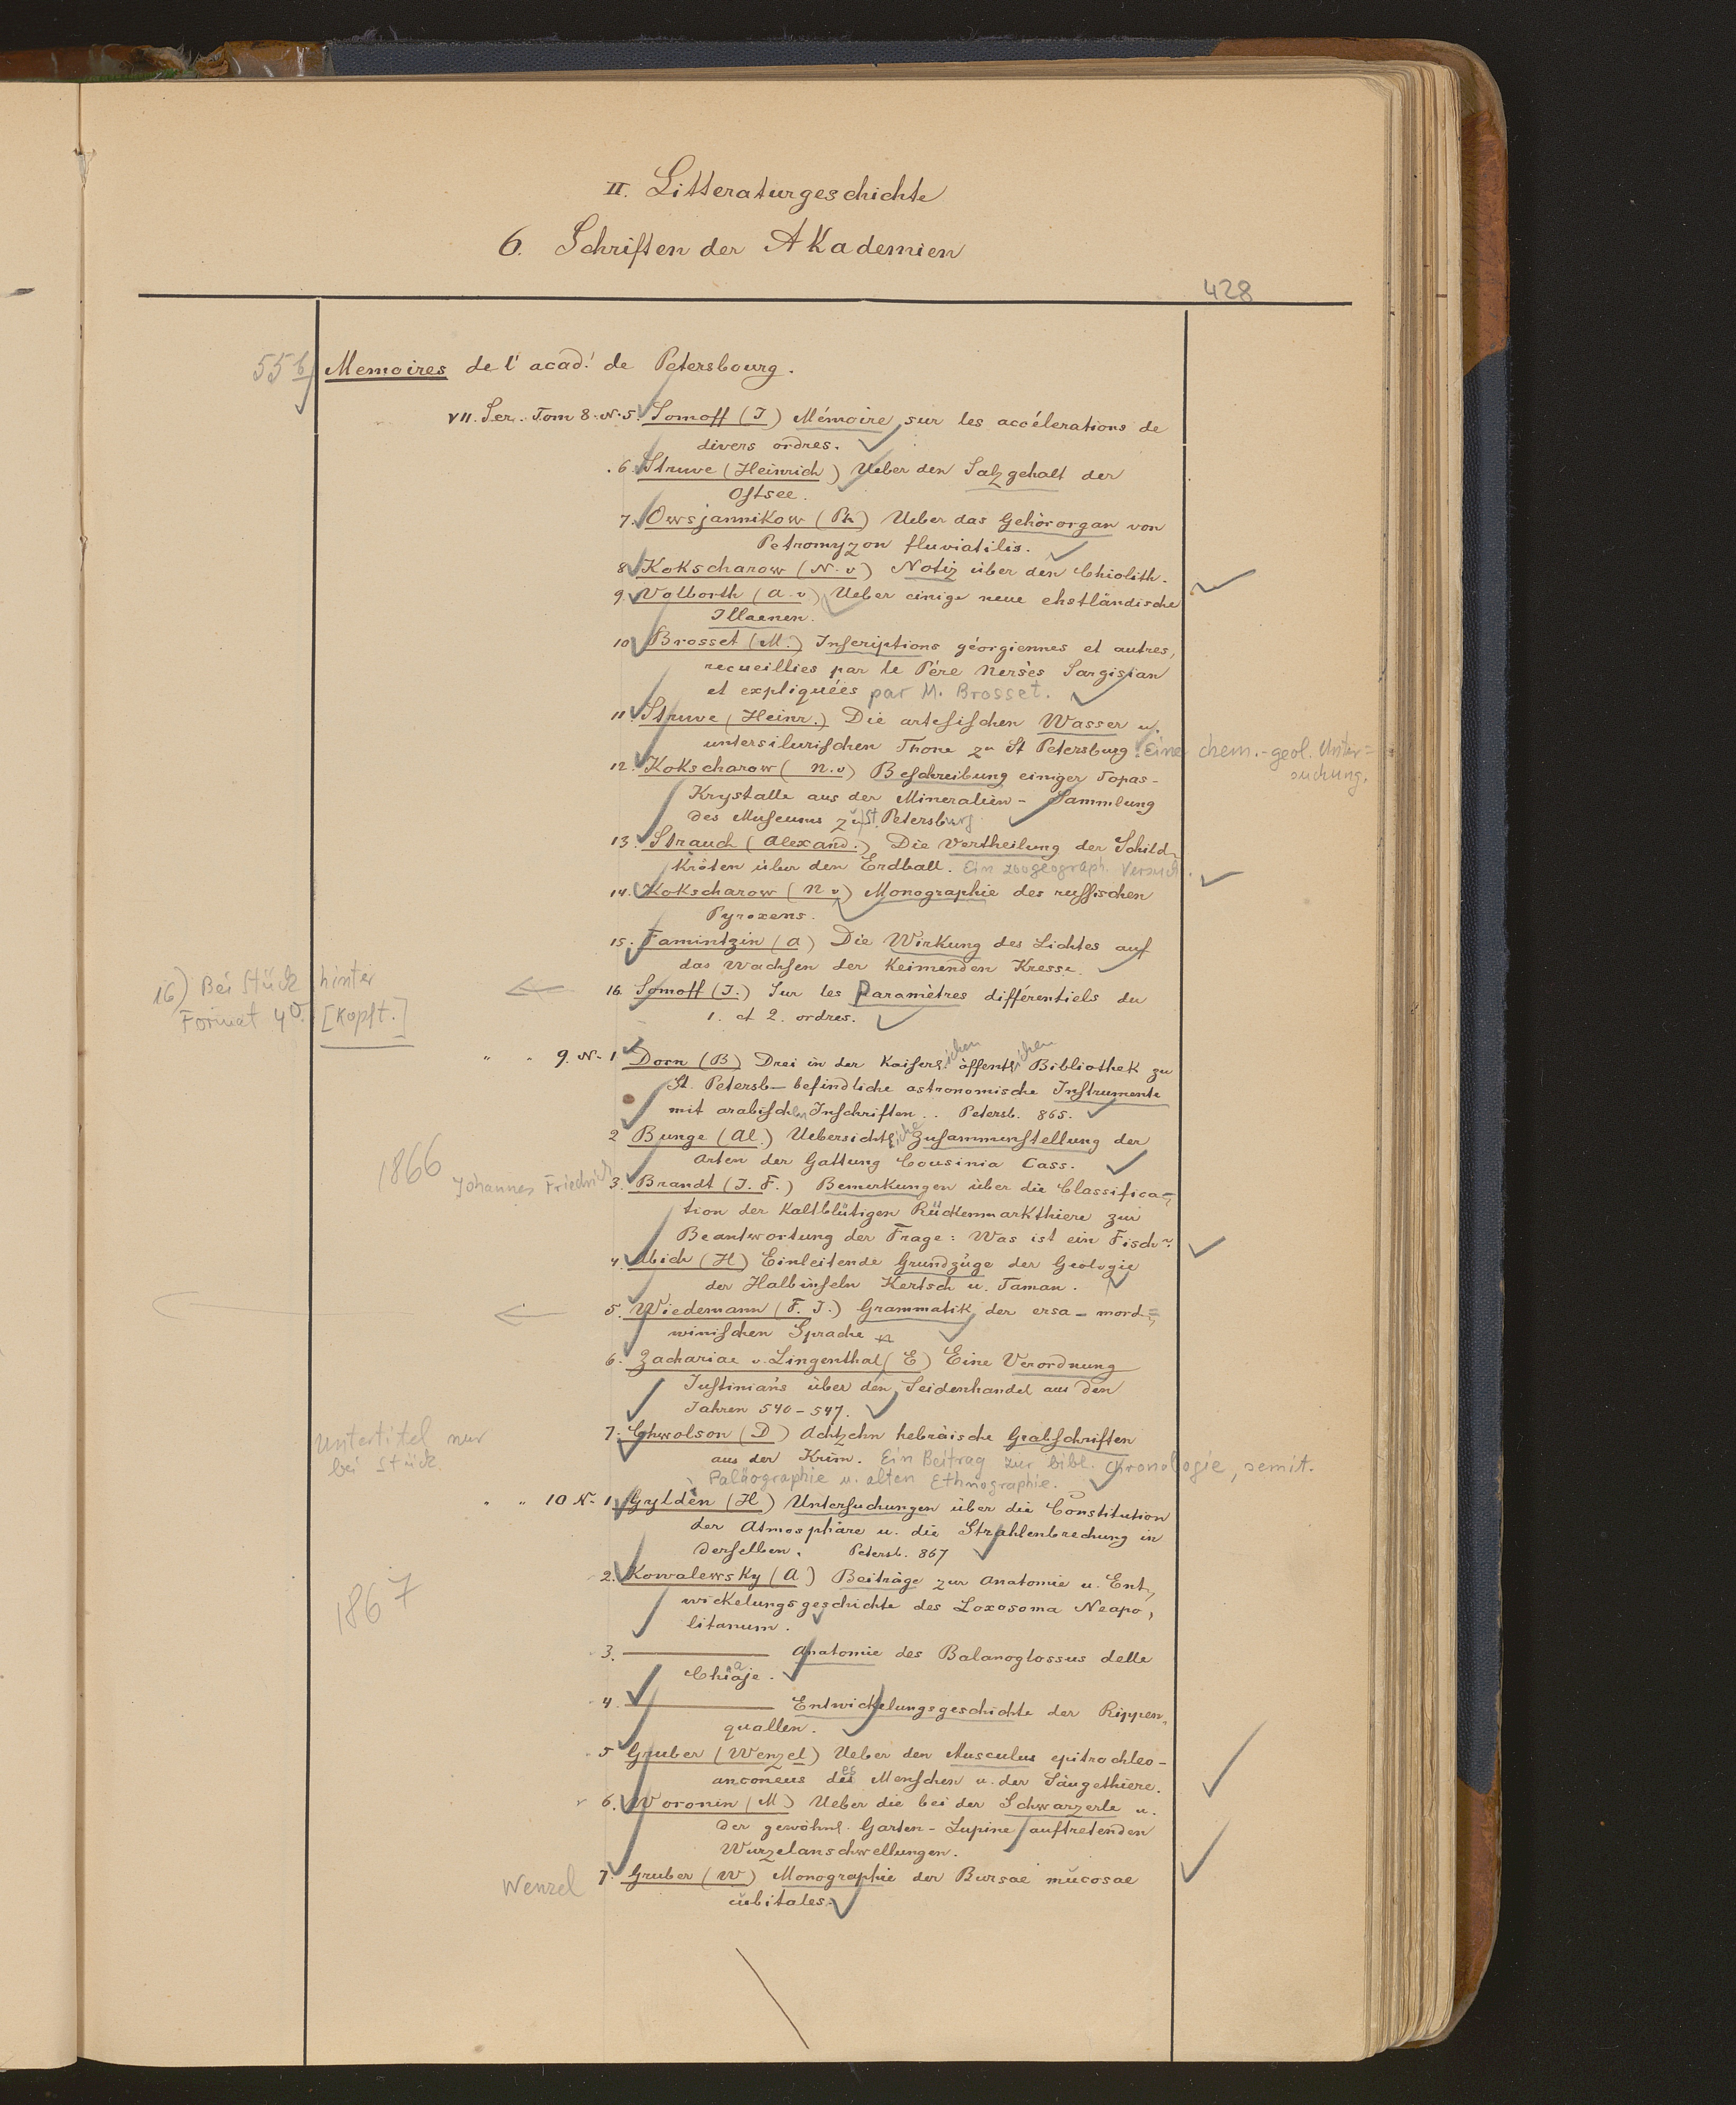 II. Litteraturgeschichte
6. Schriften der Akademien
428
55b Memoires de l'acad! de Petersbourg.
VII. Ser. Tom 8. N. 5. Somoff (J) Mémoire sur les accélerations de
divers ordres.
6. Struve (Heinrich) Ueber den Salzgehalt der
Ostsee.
7. Owsjannikow (Ph) Ueber das Gehörorgan von
Petromyzon fluviatilis.
8 Kokscharow (N. v) Notiz über den Chiolith.
9. Volborth (A. v) Ueber einige neue ehstländische
Illaenen.
10 Brosset (M.) Inscriptions géorgiennes et autres,
recueillies par le Père Nersès Sargisian
et expliquées par M. Brosset.
11. Struve (Heinr.) Die artesischen Wasser u.
untersilurischen Thone zu St Petersburg. Eine chem.-geol. Unter=
suchung.
12. Kokscharow (N. v) Beschreibung einiger Topas-
Krystalle aus der Mineralien-Sammlung
des Museums zu St. Petersburg.
13. Strauch (Alexand.) Die Vertheilung der Schild-
kröten über den Erdball. Ein zoogeograph. Versuch.
14. Kokscharow (N v) Monographie des russischen
Pyroxens.
15. Famintzin (A) Die Wirkung des Lichtes auf
das Wachsen der Keimenden Kresse.
16) Bei Stück hinter
Format 4°. [Kopft.]
16. Somoff (J.) Sur les Paramètres différentiels du
1. et 2. ordres.
" " 9. N. 1 Dorn (B) Drei in der Kaiserlichen öffentlichen Bibliothek zu
St. Petersb- befindliche astronomische Instrumente
mit arabischen Inschriften .. Petersb. 865.
2 Bunge (Al.) Uebersichtliche Zusammenstellung der
Arten der Gattung Cousinia Cass.
1866
Johannes Friedrich 3. Brandt (J. F.) Bemerkungen über die Classifica=
tion der Kaltblütigen Rückenmarkthiere zur
Beantwortung der Frage: Was ist ein Fisch?
4. Abich (H) Einleitende Grundzüge der Geologie
der Halbinseln Kertsch u. Taman.
5. Wiedemann (F. J.) Grammatik der ersa-mord=
winischen Sprache
6. Zachariae v. Lingenthal (E) Eine Verordnung
Justinian's über den Seidenhandel aus den
Jahren 540-547.
Untertitel nur
bei Stück.
7. Chwolson (D) Achtzehn hebräische Grabschriften
aus der Krim. Ein Beitrag zur bibl. Chronologie, semit.
Paläographie u. alten Ethnographie.
" " 10 N. 1 Gyldèn (H) Untersuchungen über die Constitution
der Atmosphäre u. die Strahlenbrechung in
derselben. Petersb. 867
1867
2. Kowalewsky (A) Beiträge zur Anatomie u. Ent,
wickelungsgeschichte des Loxosoma Neapo,
litanum.
3. ——— Anatomie des Balanoglossus delle
Chiaje.
4. ——— Entwickelungsgeschichte der Rippen,
quallen.
5 Gruber (Wenzel) Ueber den Musculus epitrochleo-
anconeus des Menschen u. der Säugethiere.
6. Woronin (M) Ueber die bei der Schwarzerle u.
der gewöhnl. Garten-Lupine auftretenden
Wurzelanschwellungen.
Wenzel 7. Gruber (W) Monographie der Bursae mucosae
cubitales.